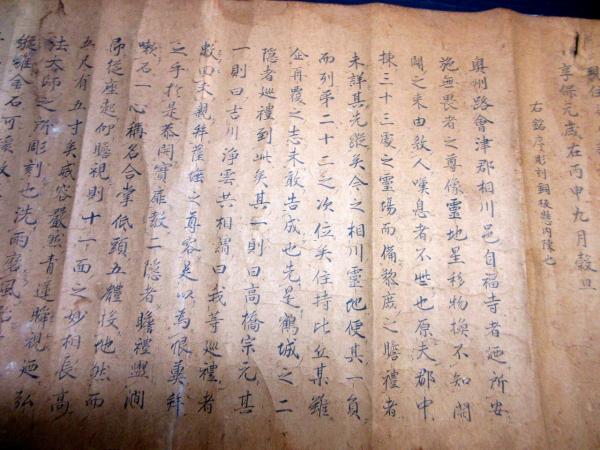 現住
享保元歳在丙申九月穀旦
右銘序彫刻銅板懸内陣也
奥州路會津郡相川邑自福寺者廼所安
施無畏者之尊像靈地星移物換不知開
闢之来由敎人嘆息者不些也原夫郡中
揀三十三處之霊場而備黎庶之瞻禮者
未詳其先蹤矣今之相川靈地便其一員
而列第二十三之次位矣住持比丘某雖
企再覆之志未敢告成也先是鶴城之二
隠者巡禮到此矣其一則曰高橋宗元其
一則曰古川淨雲共相謂曰我等巡禮者
數回未親拜薩埵之尊容是以為恨奠拜
之乎於是恭開寶扉敎二隠者瞻禮盥澗
嗽石一心稱名合掌低頭五體投地然而
即従座起仰瞻視則十一面之妙相長高
五尺有五寸矣威容嚴然青蓮瞬視廼弘
法大師之所彫刻也洗雨磨風
縦雖金石可壊